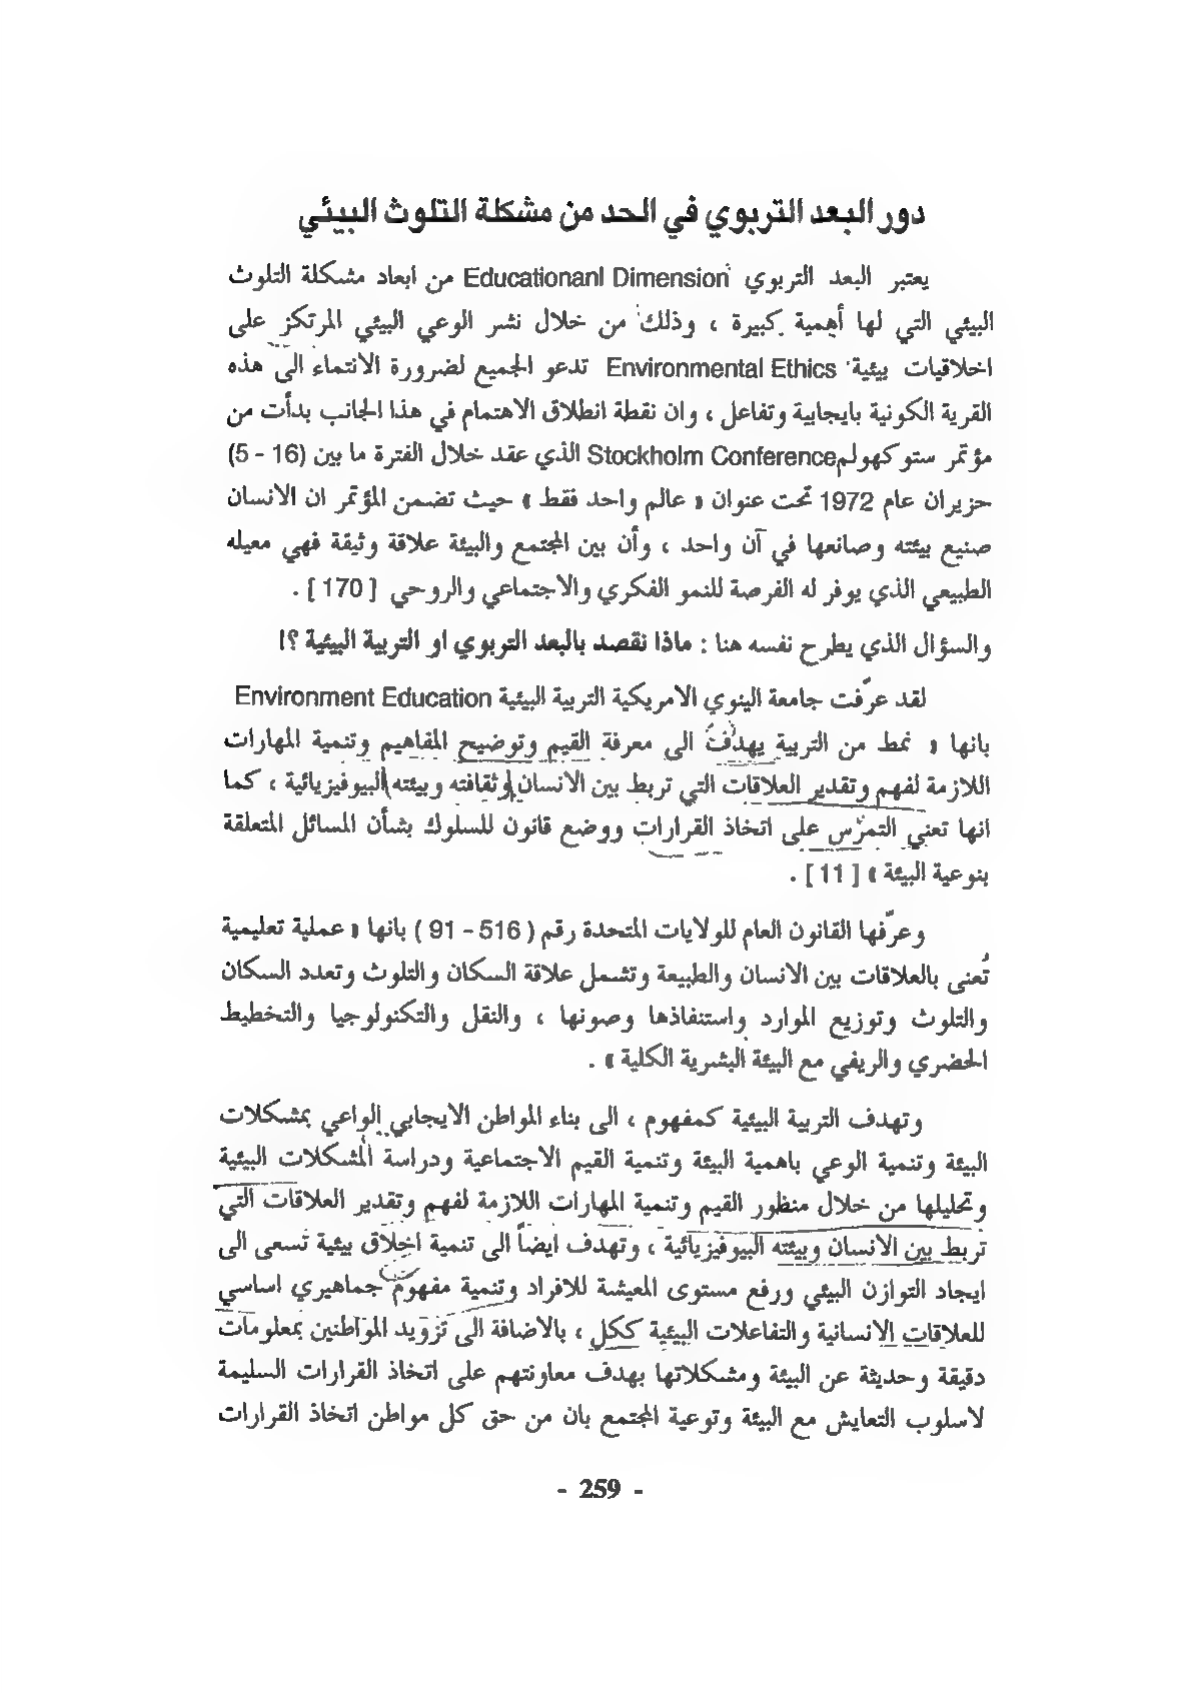 دور البعد التربوي في الحد من مشكلة التلوث البيئي
يعتبر البعد التربوي Educationanl Dimension من ابعاد مشكلة التلوث
البيئي التي لها أهمية كبيرة ، وذلك من خلال نشر الوعي البيئي المرتكز على
اخلاقيات بيئية Environmental Ethics تدعو الجميع لضرورة الانتماء الى هذه
القرية الكونية بايجابية وتفاعل ، وان نقطة انطلاق الاهتمام في هذا الجانب بدأت من
مؤتمر ستوكهولم Stockholm Conference الذي عقد خلال الفترة ما بين (16 - 5)
حزيران عام 1972 تحت عنوان « عالم واحد فقط » حيث تضمن المؤتمر ان الانسان
صنيع بيئته وصانعها في آن واحد ، وأن بين المجتمع والبيئة علاقة وثيقة فهي معيله
الطبيعي الذي يوفر له الفرصة للنمو الفكري والاجتماعي والروحي [ 170 ] .
والسؤال الذي يطرح نفسه هنا : ماذا نقصد بالبعد التربوي او التربية البيئية ؟!
لقد عرّفت جامعة الينوي الامريكية التربية البيئية Environment Education
بانها « نمط من التربية يهدف الى معرفة القيم وتوضيح المفاهيم وتنمية المهارات
اللازمة لفهم وتقدير العلاقات التي تربط بين الانسان وثقافته وبيئته البيوفيزيائية ، كما
انها تعني التمرّس على اتخاذ القرارات ووضع قانون للسلوك بشأن المسائل المتعلقة
بنوعية البيئة » [ 11 ] .
وعرّفها القانون العام للولايات المتحدة رقم ( 516 - 91 ) بانها « عملية تعليمية
تُعنى بالعلاقات بين الانسان والطبيعة وتشمل علاقة السكان والتلوث وتعدد السكان
والتلوث وتوزيع الموارد واستنفاذها وصونها ، والنقل والتكنولوجيا والتخطيط
الحضري والريفي مع البيئة البشرية الكلية » .
وتهدف التربية البيئية كمفهوم ، الى بناء المواطن الايجابي الواعي بمشكلات
البيئة وتنمية الوعي باهمية البيئة وتنمية القيم الاجتماعية ودراسة المشكلات البيئية
وتحليلها من خلال منظور القيم وتنمية المهارات اللازمة لفهم وتقدير العلاقات التي
تربط بين الانسان وبيئته البيوفيزيائية ، وتهدف ايضاً الى تنمية اخلاق بيئية تسعى الى
ايجاد التوازن البيئي ورفع مستوى المعيشة للافراد وتنمية مفهوم جماهيري اساسي
للعلاقات الانسانية والتفاعلات البيئية ككل ، بالاضافة الى تزويد المواطنين بمعلومات
دقيقة وحديثة عن البيئة ومشكلاتها بهدف معاونتهم على اتخاذ القرارات السليمة
لاسلوب التعايش مع البيئة وتوعية المجتمع بان من حق كل مواطن اتخاذ القرارات
- 259 -